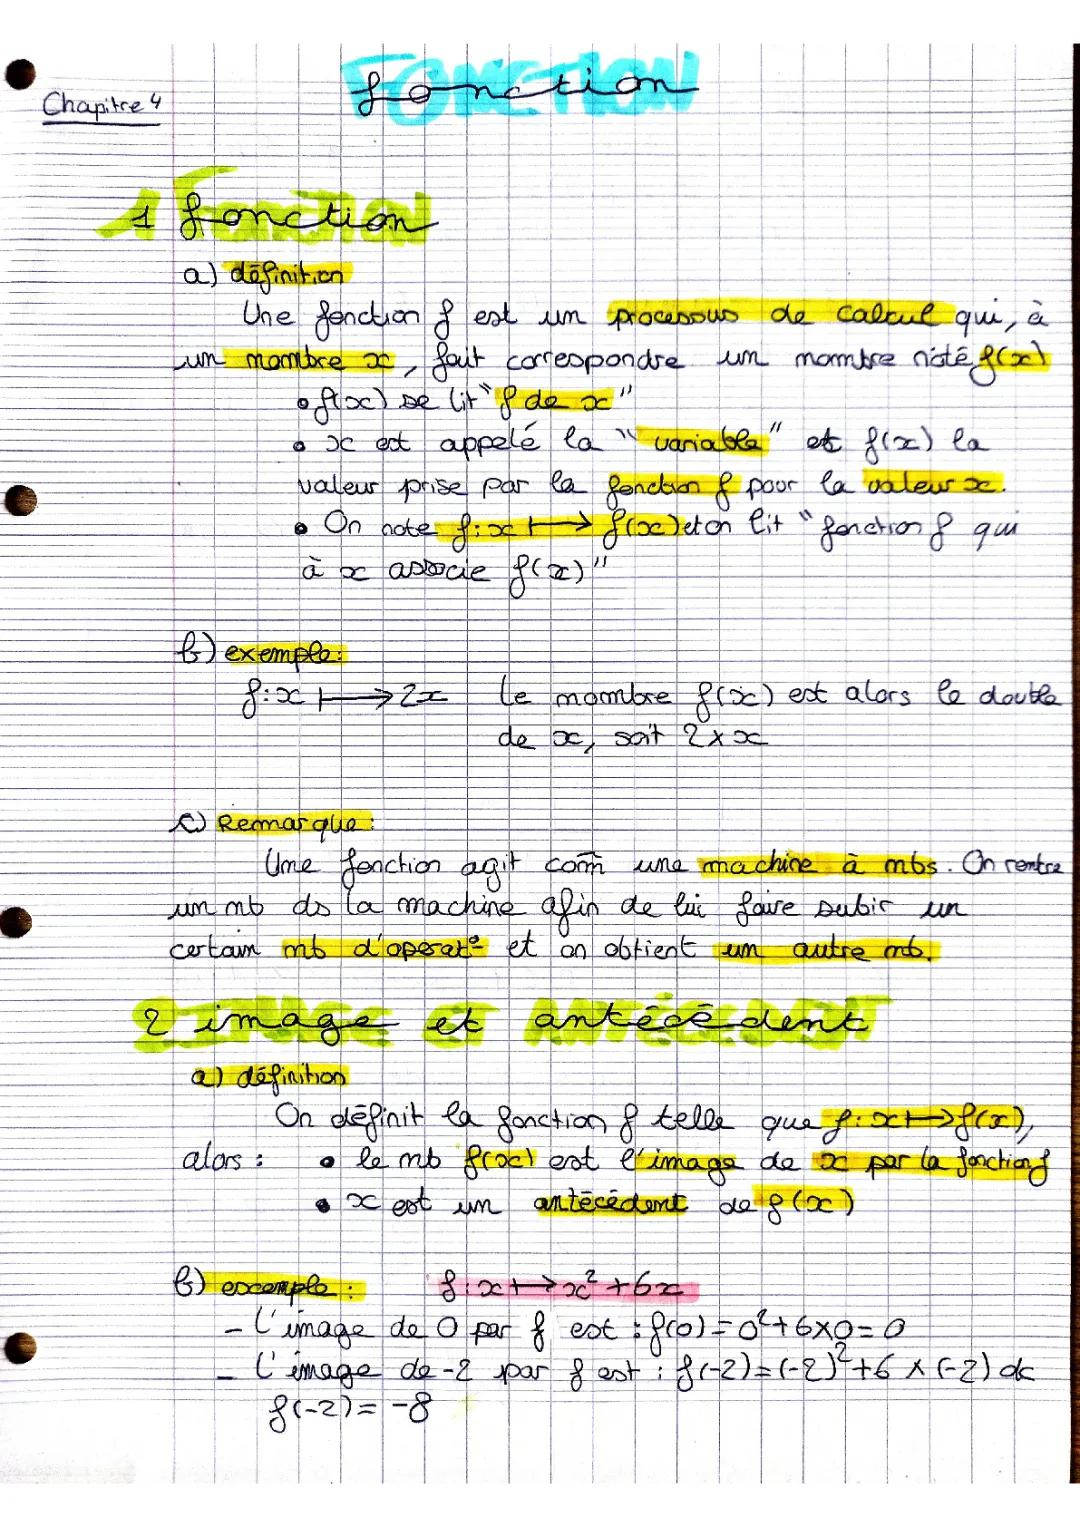 Chapitre 4
FONCTION
fonction
1 fonction
a) définition
Une fonction f est un processus de calcul qui, à
un nombre x, fait correspondre un nombre noté f(x)
• f(x) se lit "f de x"
• x est appelé la "variable" et f(x) la
valeur prise par la fonction f pour la valeur x.
• On note f: x ⟼ f(x) et on lit "fonction f qui
à x associe f(x)"
b) exemple:
f: x ⟼ 2x le nombre f(x) est alors le double
de x, soit 2 × x
c) Remarque:
Une fonction agit com̄ une machine à mbs. On rentre
un mb ds la machine afin de lui faire subir un
certain mb d'operat° et on obtient un autre mb.
2 image et antécédent
a) définition
On définit la fonction f telle que f: x ⟼ f(x),
alors : • le mb f(x) est l'image de x par la fonction f
• x est un antécédent de f(x)
b) excemple : f: x ⟼ x² + 6x
- l'image de 0 par f est : f(0) = 0² + 6×0 = 0
- l'image de -2 par f est : f(-2) = (-2)² + 6 × (-2) dc
f(-2) = -8